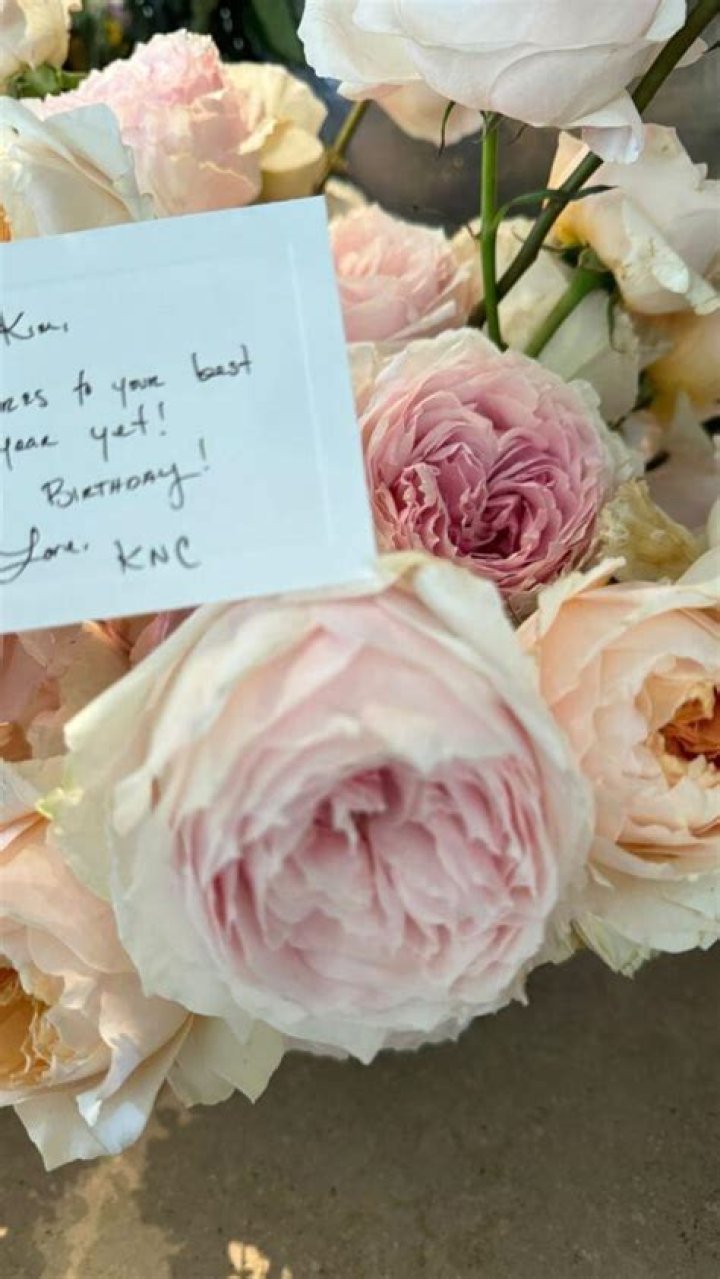 Kim,
to your best
year yet!
BIRTHDAY!
Love, KNC